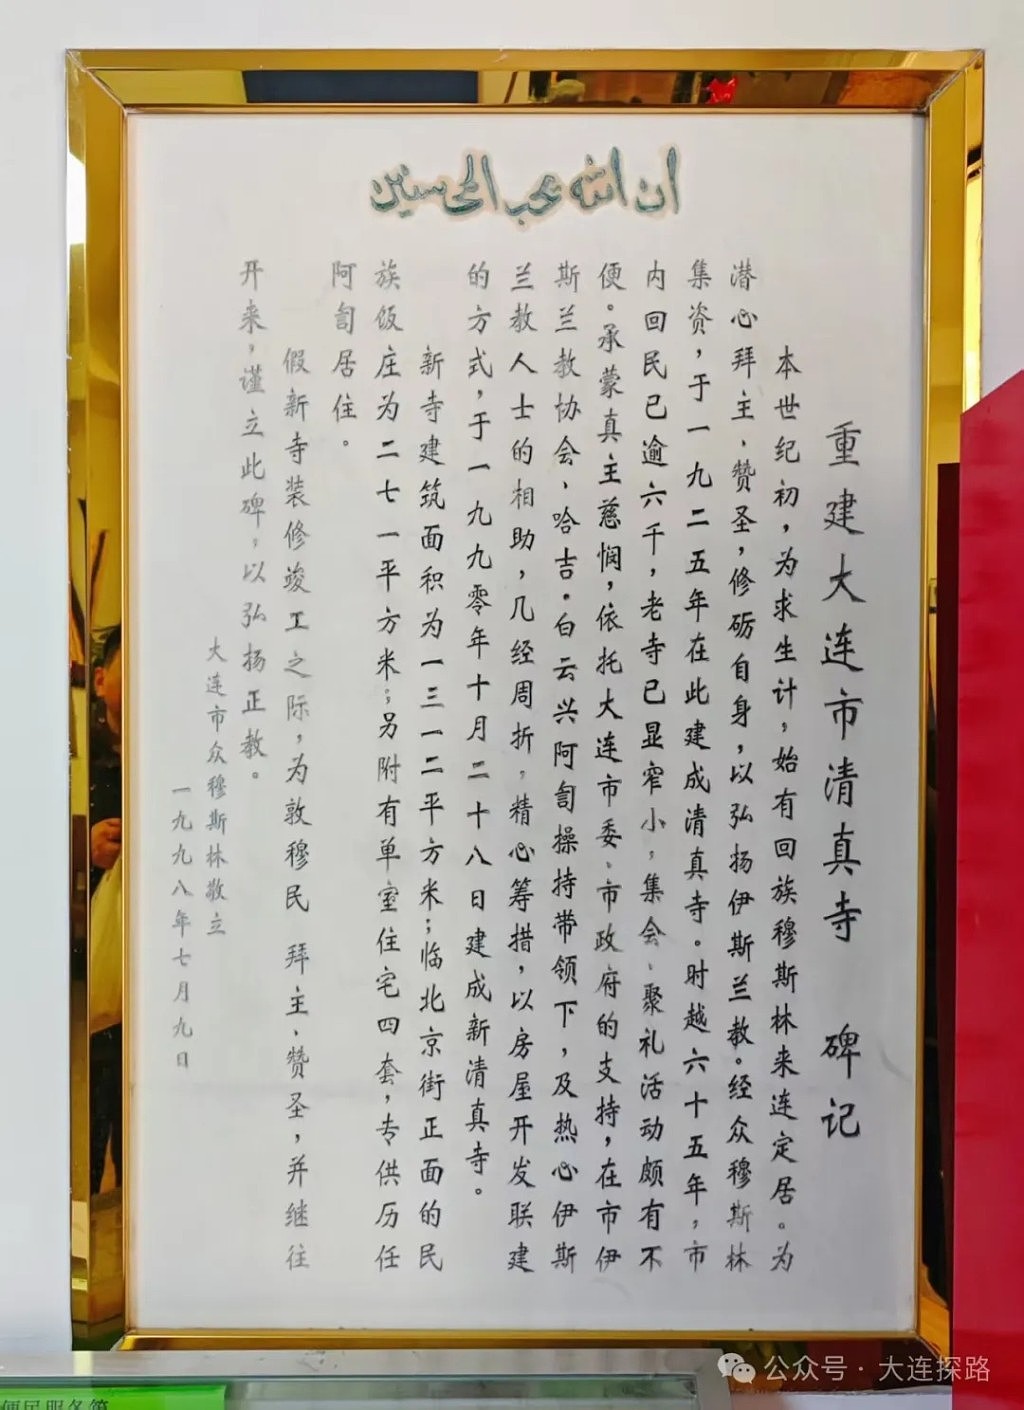 ان الله يحب المحسنين
重建大连市清真寺 碑记
本世纪初，为求生计，始有回族穆斯林来连定居。为
潜心拜主、赞圣，修砺自身，以弘扬伊斯兰教。经众穆斯林
集资，于一九二五年在此建成清真寺。时越六十五年，市
内回民已逾六千，老寺已显窄小，集会、聚礼活动颇有不
便。承蒙真主慈悯，依托大连市委、市政府的支持，在市伊
斯兰教协会、哈吉·白云兴阿訇操持带领下，及热心伊斯
兰教人士的相助，几经周折，精心筹措，以房屋开发联建
的方式，于一九九零年十月二十八日建成新清真寺。
新寺建筑面积为一三一二平方米；临北京街正面的民
族饭庄为二七一平方米；另附有单室住宅四套，专供历任
阿訇居住。
假新寺装修竣工之际，为敦穆民 拜主、赞圣，并继往
开来，谨立此碑，以弘扬正教。
大连市众穆斯林敬立
一九九八年七月九日
便民服务箱
公众号·大连探路